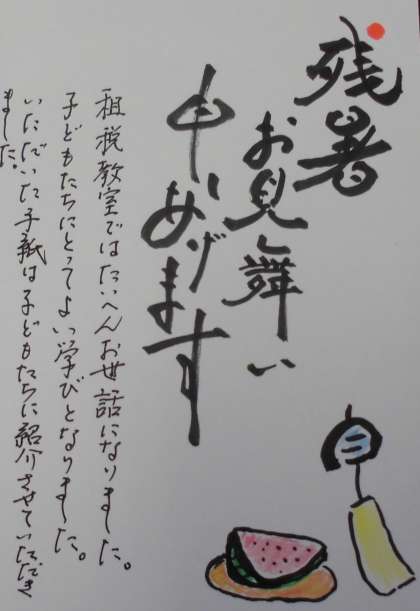 残暑
お見舞い
申しあげます
租税教室ではたいへんお世話になりました。
子どもたちにとってよい学びとなりました。
いただいた手紙は子どもたちに紹介させていただき
ました。